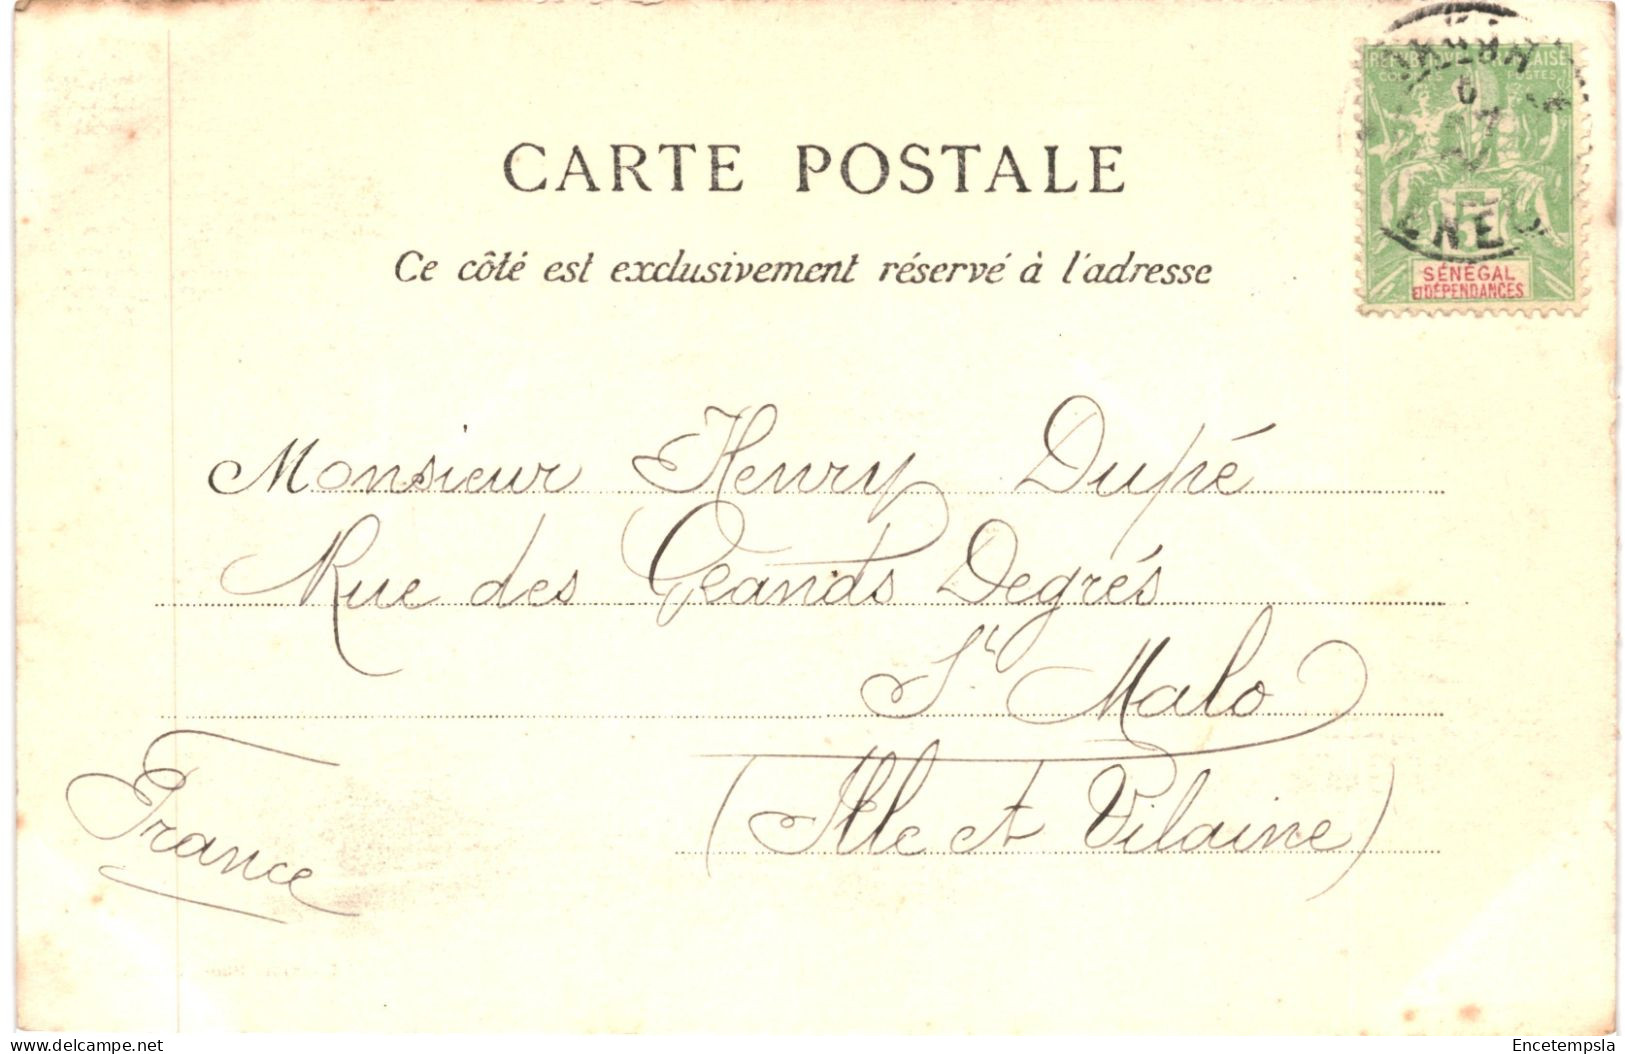 CARTE POSTALE
Ce côté est exclusivement réservé à l'adresse
RÉPUBLIQUE FRANÇAISE
COLONIES POSTES
5
SÉNÉGAL
ET DÉPENDANCES
Monsieur Henry Dupé
Rue des Grands Degrés
St Malo
(Ille et Vilaine)
France
www.delcampe.net
Encetempsla